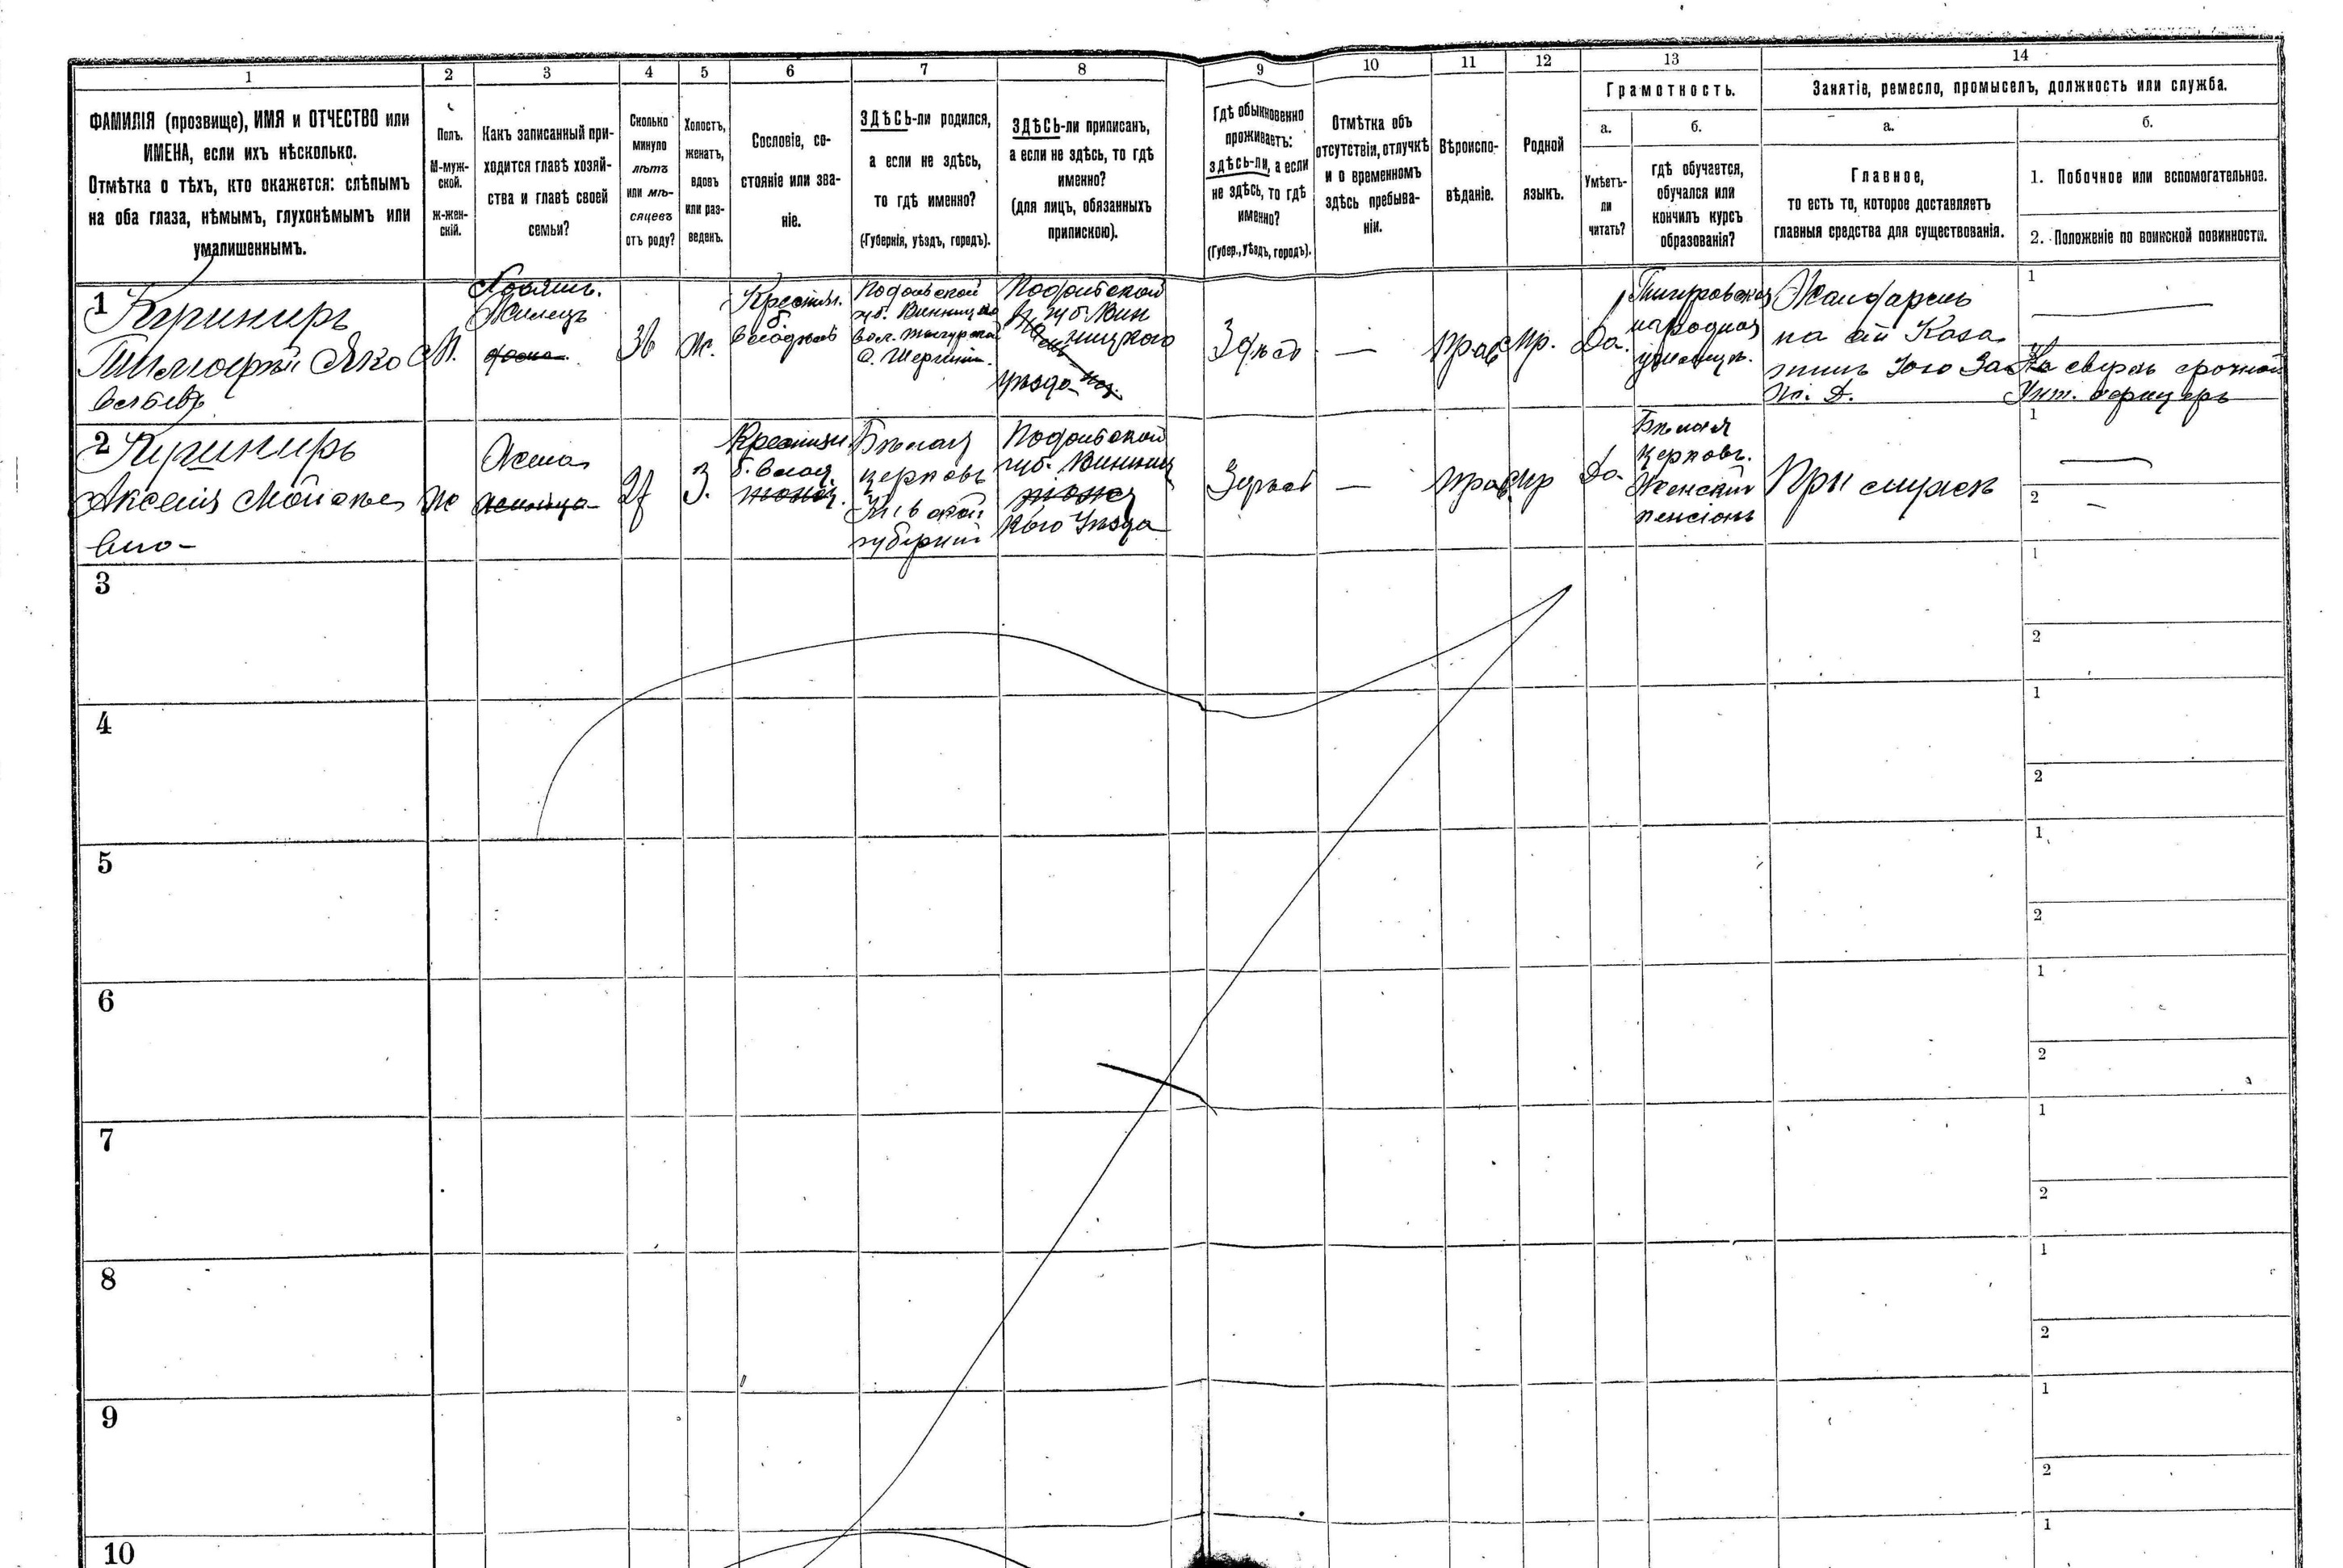 1
2
3
4
5
6
7
8
9
10
11
12
13
14
ФАМИЛІЯ (прозвище), ИМЯ и ОТЧЕСТВО или
ИМЕНА, если ихъ нѣсколько.
Отмѣтка о тѣхъ, кто окажется: слѣпымъ
на оба глаза, нѣмымъ, глухонѣмымъ или
умалишеннымъ.
Полъ.
М-муж-
ской.
ж-жен-
скій.
Какъ записанный при-
ходится главѣ хозяй-
ства и главѣ своей
семьи?
Сколько
минуло
лѣтъ
или мѣ-
сяцевъ
отъ роду?
Холостъ,
женатъ,
вдовъ
или раз-
веденъ.
Сословіе, со-
стояніе или зва-
ніе.
ЗДѢСЬ-ли родился,
а если не здѣсь,
то гдѣ именно?
(Губернія, уѣздъ, городъ).
ЗДѢСЬ-ли приписанъ,
а если не здѣсь, то гдѣ
именно?
(для лицъ, обязанныхъ
припискою).
Гдѣ обыкновенно
проживаетъ:
здѣсь-ли, а если
не здѣсь, то гдѣ
именно?
(Губер., уѣздъ, городъ).
Отмѣтка объ
отсутствіи, отлучкѣ
и о временномъ
здѣсь пребыва-
ніи.
Вѣроиспо-
вѣданіе.
Родной
языкъ.
Грамотность.
а.
Умѣетъ-
ли
читать?
б.
гдѣ обучается,
обучался или
кончилъ курсъ
образованія?
Занятіе, ремесло, промыселъ, должность или служба.
а.
Главное,
то есть то, которое доставляетъ
главныя средства для существованія.
б.
1. Побочное или вспомогательное.
2. Положеніе по воинской повинности.
1
Тимофей Яко
М.
Жилецъ
36
Ж.
Крестьян.
Подольской
губ. Винницко
Подольской
губ. Вин
ницкого
уѣзда
Здѣсь
—
Прав
Да.
народная
Жандармъ
на ст Каза
1
—
На сверхъ срочной
Унт. офицеръ
2
Кушниръ
Аксенія
Ж
Жена
27
З.
Бѣлая
церковь
Кіевской
губерніи
Подольской
губ. Винниц
кого Уѣзда
Здѣсь
—
Прав
Да.
Бѣлая
Церковь.
Женскій
пенсіонъ
При мужѣ
1
—
2
—
3
1
2
4
1
2
5
1
2
6
1
2
7
1
2
8
1
2
9
1
2
10
1